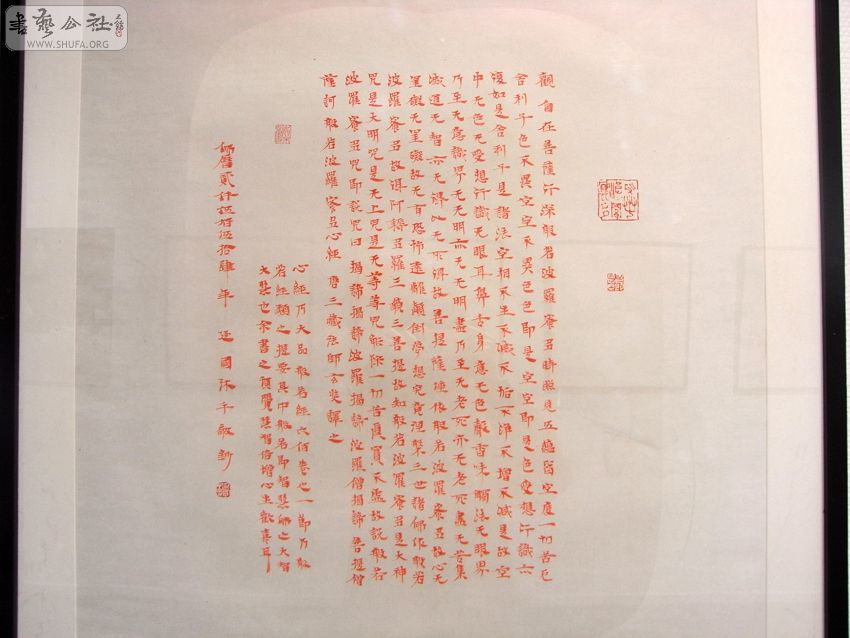 書藝公社
WWW.SHUFA.ORG
觀自在菩薩行深般若波羅蜜多時照見五蘊皆空度一切苦厄
舍利子色不異空空不異色色即是空空即是色受想行識亦
復如是舍利子是諸法空相不生不滅不垢不淨不增不減是故空
中无色无受想行識无眼耳鼻舌身意无色聲香味觸法无眼界
乃至无意識界无无明亦无无明盡乃至无老死亦无老死盡无苦集
滅道无智亦无得以无所得故菩提薩埵依般若波羅蜜多故心无
罣礙无罣礙故无有恐怖遠離顛倒夢想究竟涅槃三世諸佛依般若
波羅蜜多故得阿耨多羅三藐三菩提故知般若波羅蜜多是大神
咒是大明咒是无上咒是无等等咒能除一切苦真實不虛故說般若
波羅蜜多咒即說咒曰揭諦揭諦波羅揭諦波羅僧揭諦菩提僧
薩訶般若波羅蜜多心經 唐三藏法師玄奘譯之
心經乃大品般若經六佰卷之一節乃般
若經類之提要其中般若即智慧佛之大智
大慧也余書之頂覺慧智倍增心生歡喜耳
佛曆貳仟伍佰伍拾肆年